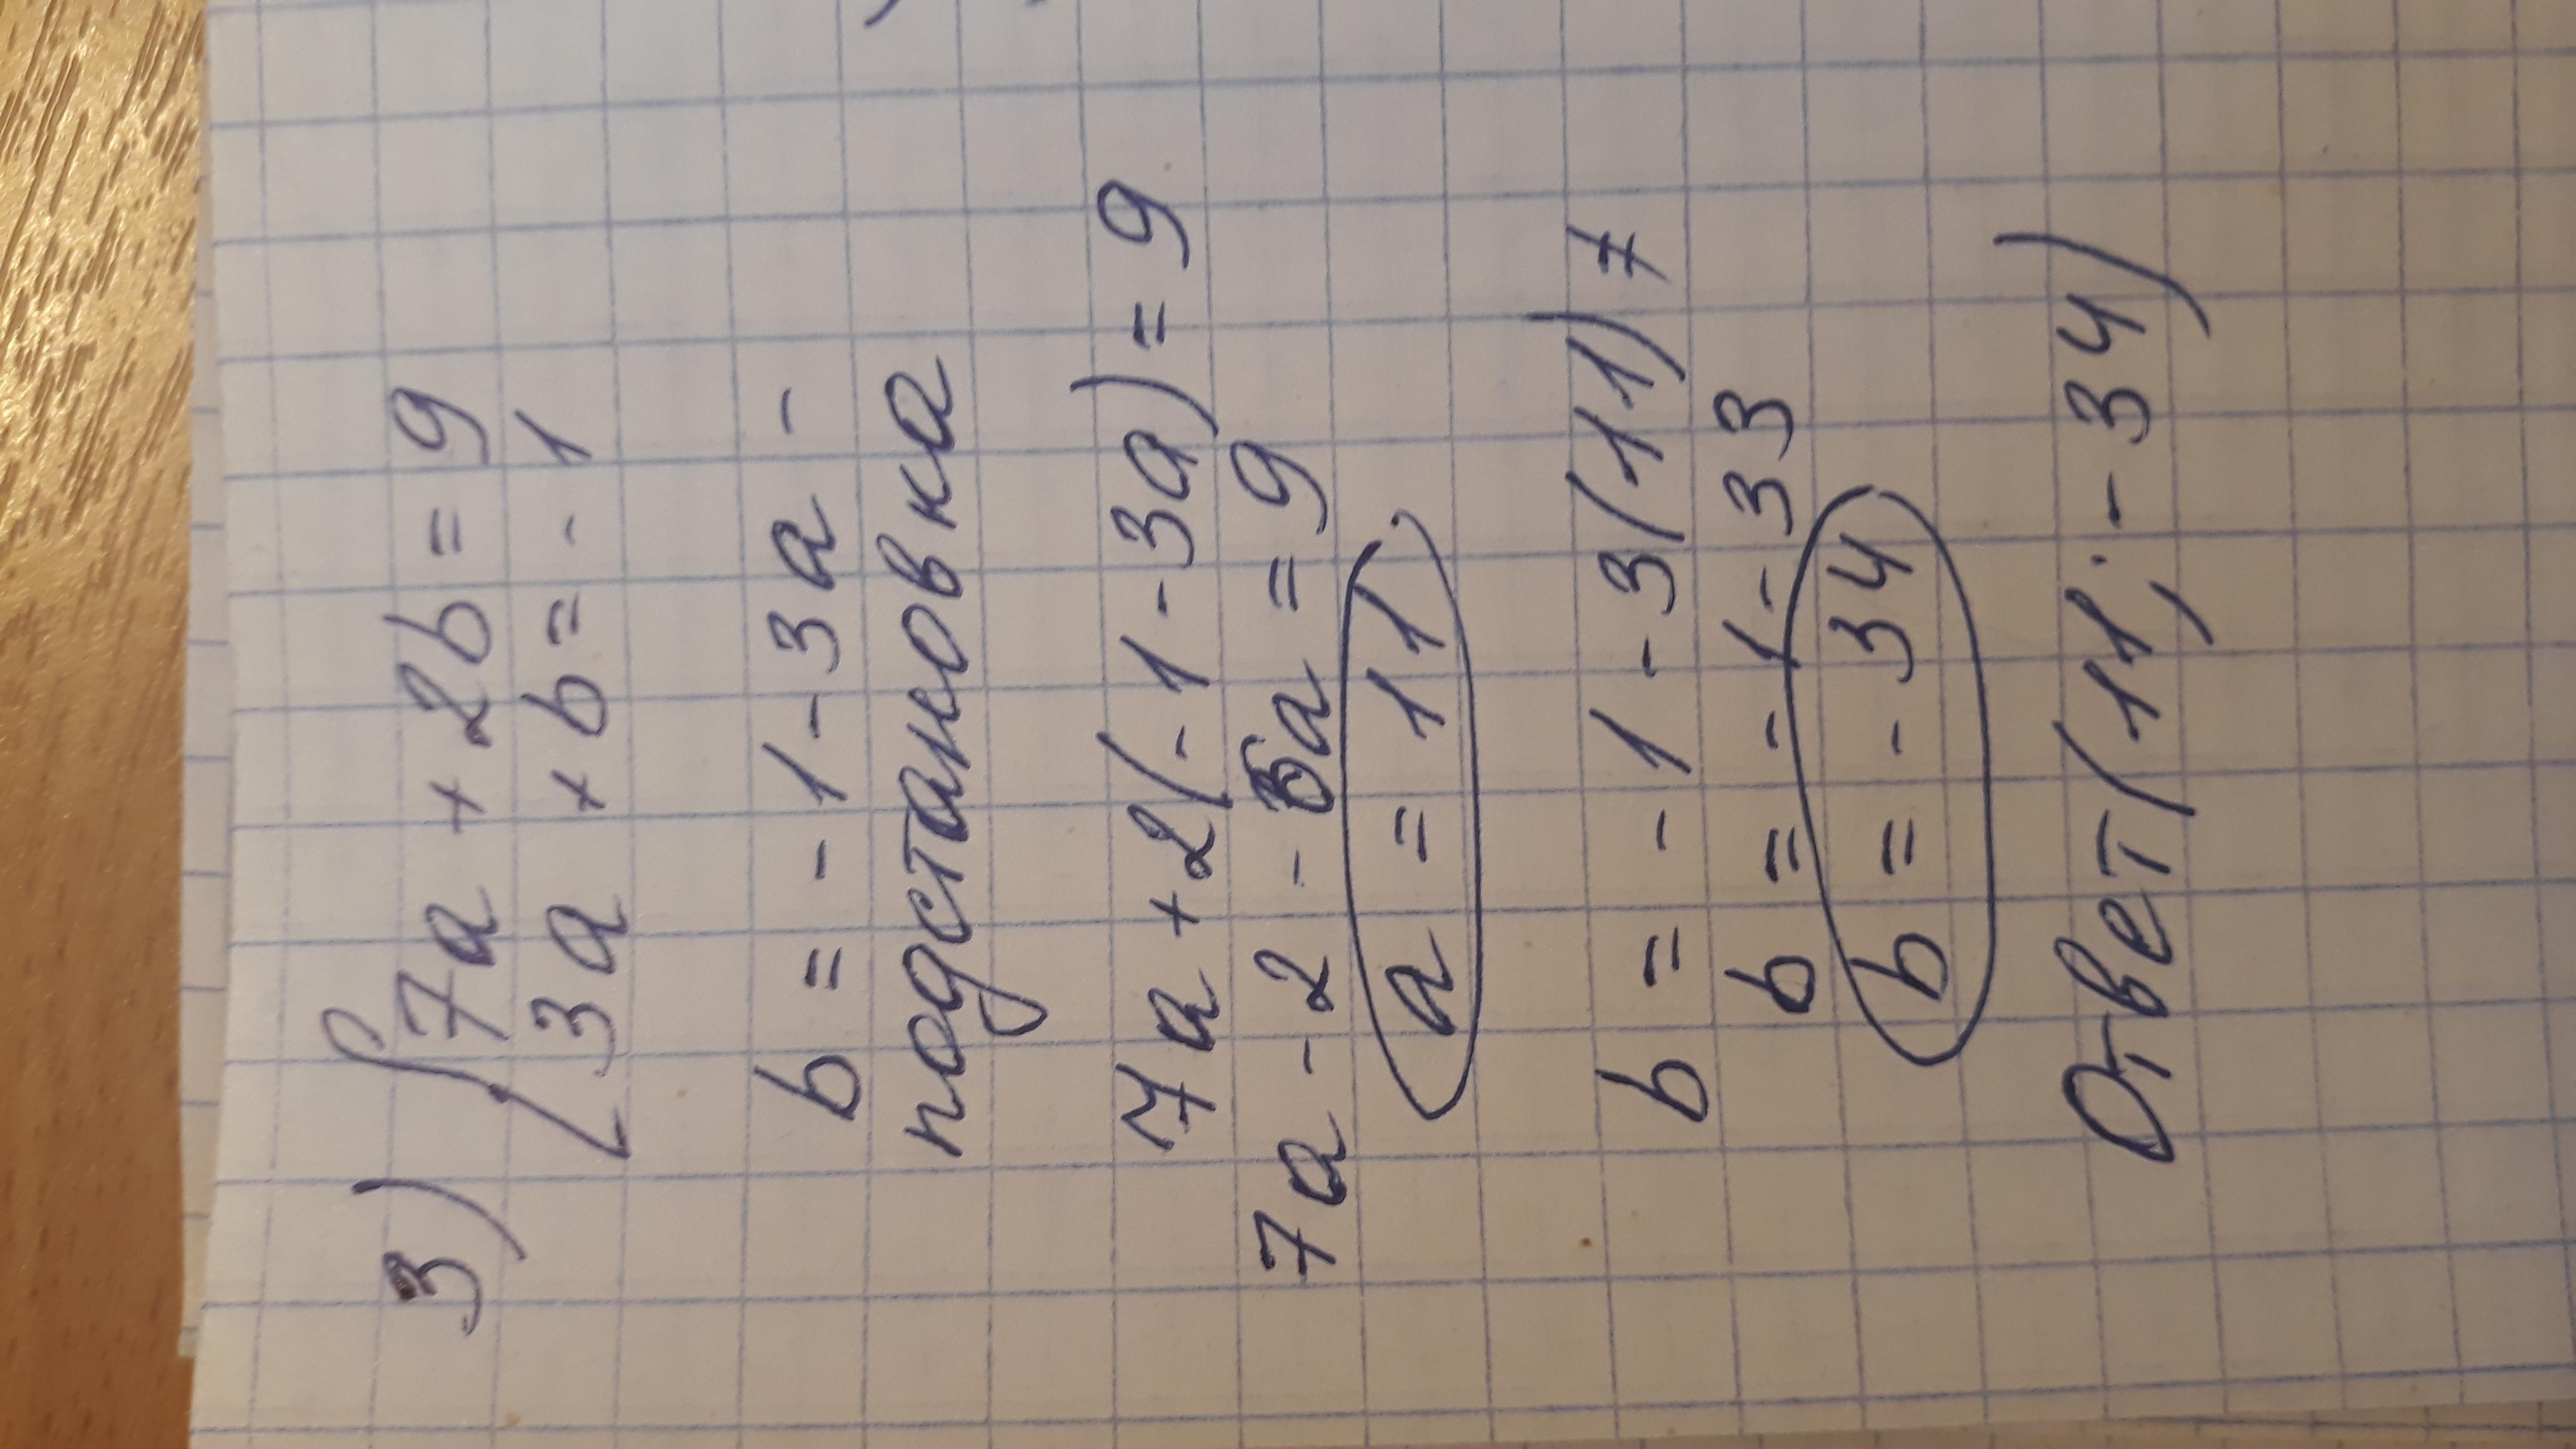 3) { 7a + 2b = 9
3a + b = -1
b = -1 - 3a -
подстановка
7a + 2(-1 - 3a) = 9
7a - 2 - 6a = 9
a = 11
b = -1 - 3(11) 7
b = -1 - 33
b = -34
Ответ (11; -34)